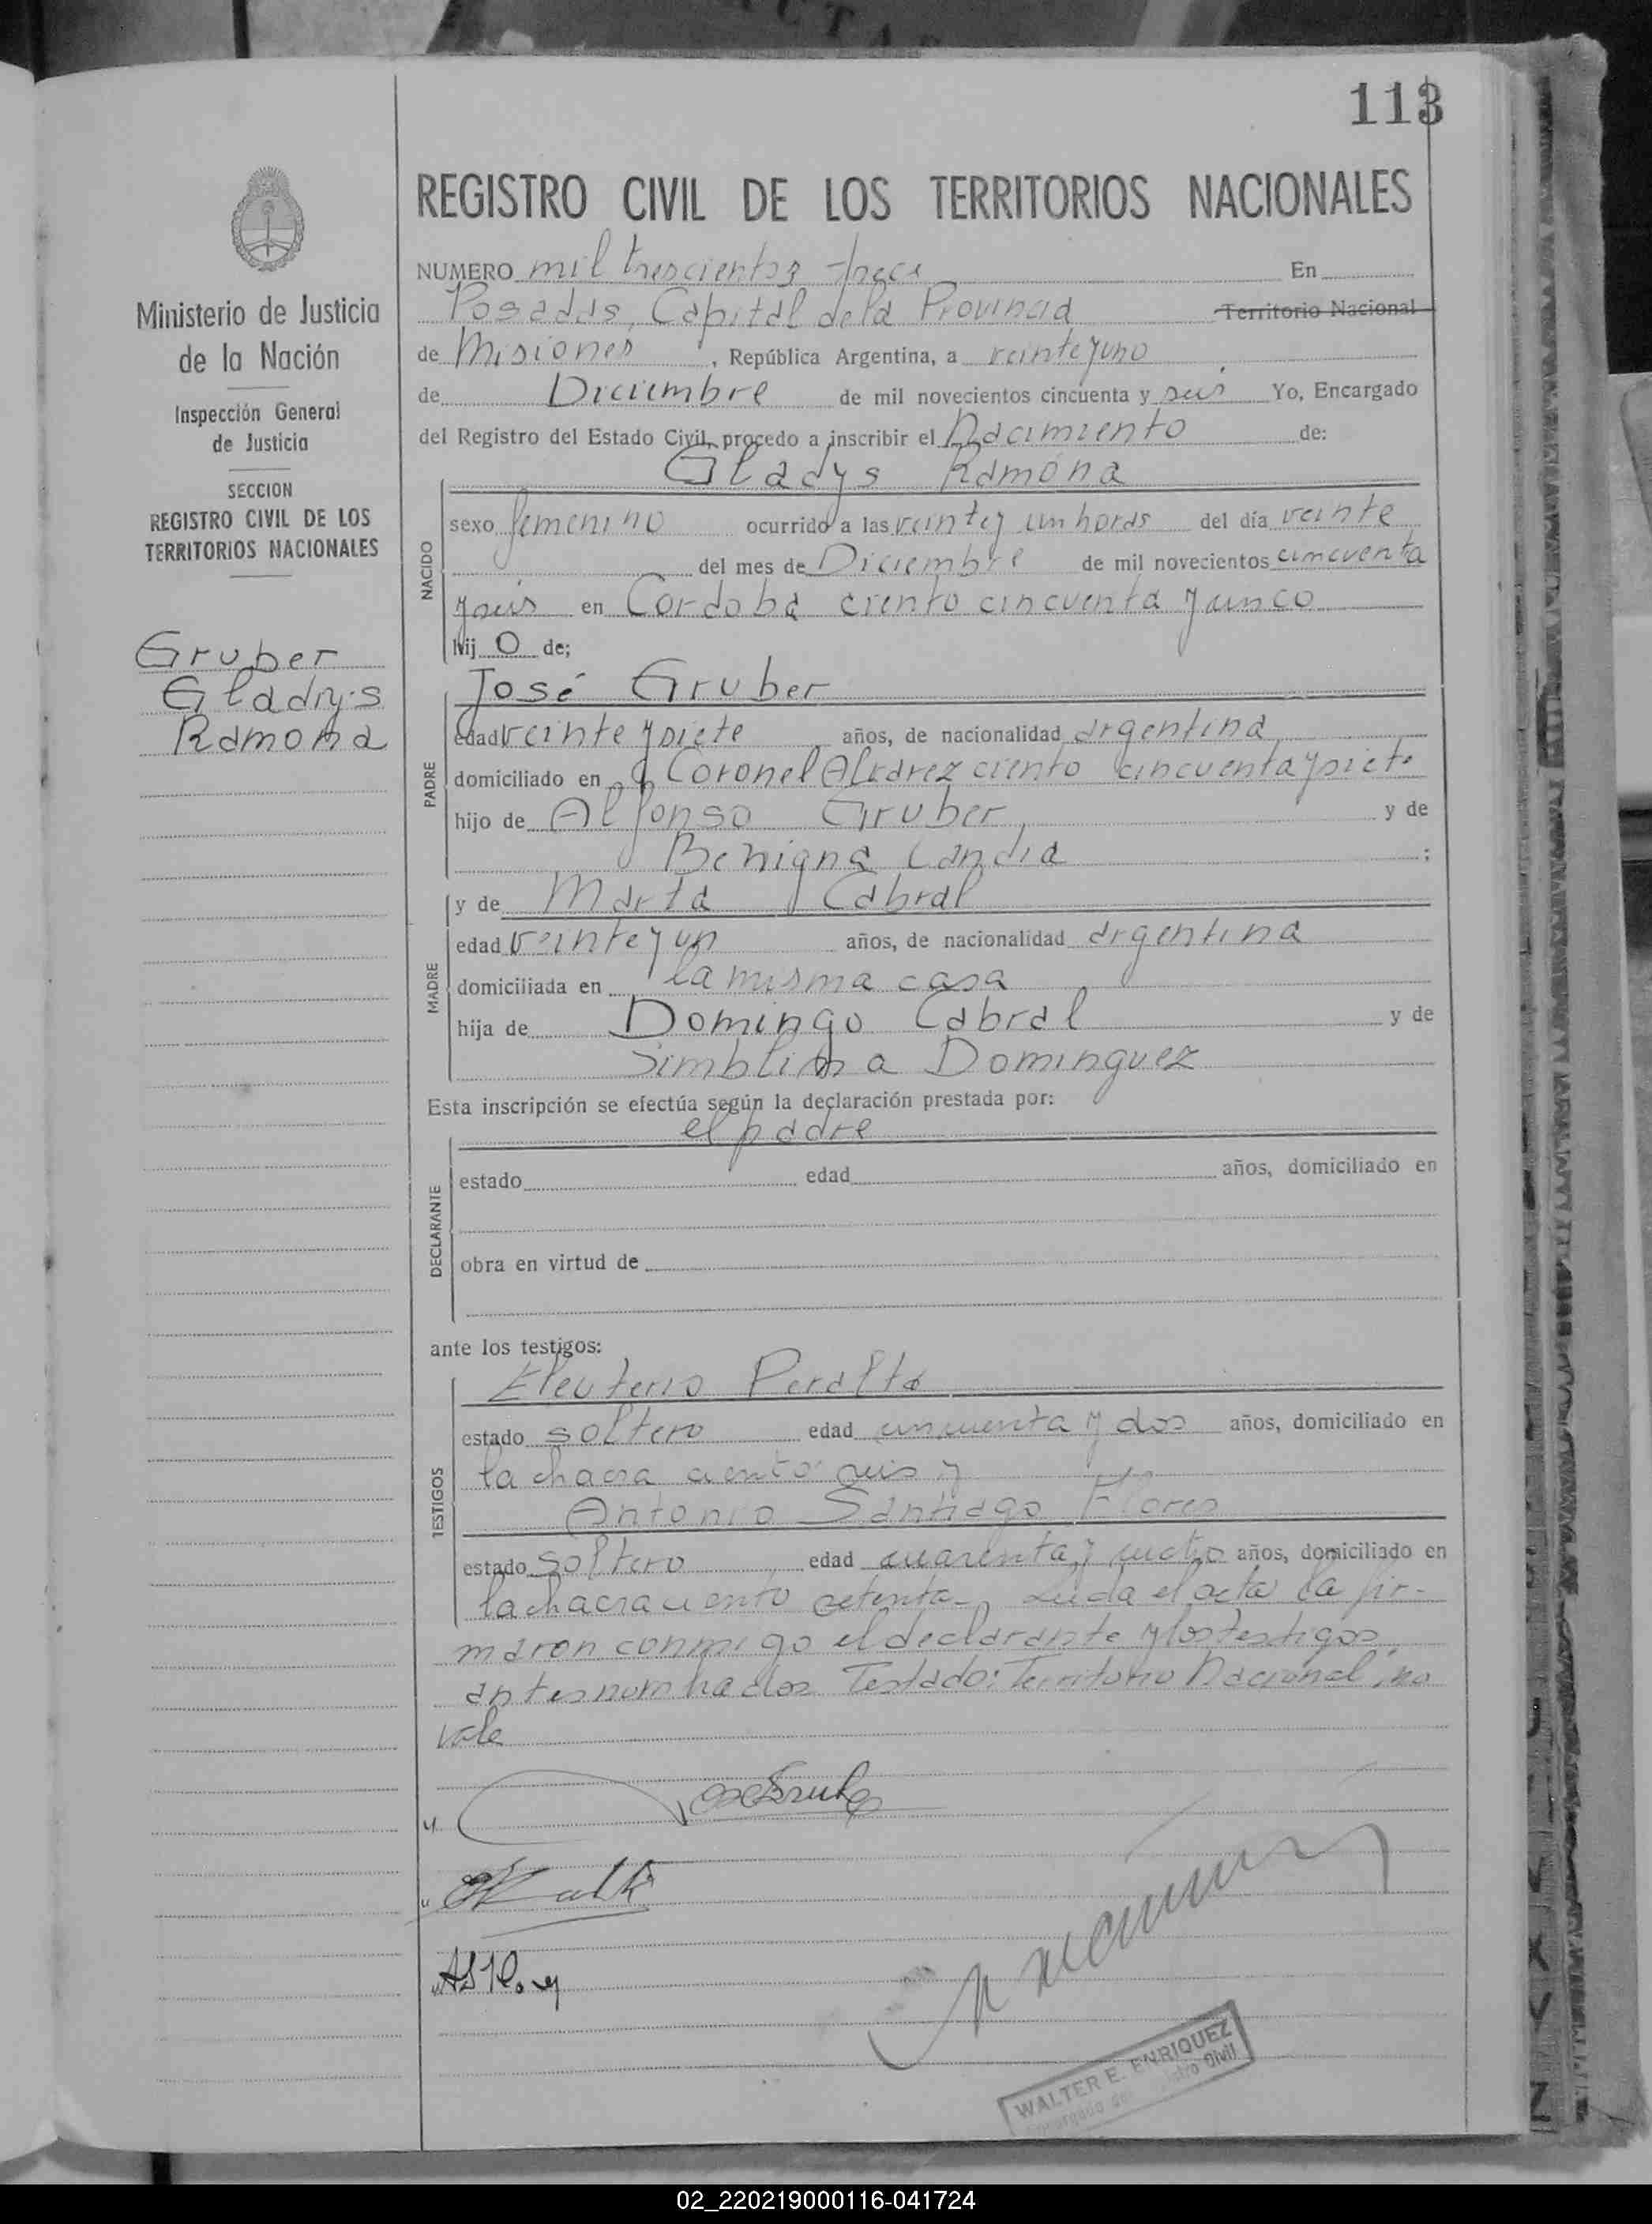 113
REGISTRO CIVIL DE LOS TERRITORIOS NACIONALES
Ministerio de Justicia
de la Nación
Inspección General
de Justicia
SECCION
REGISTRO CIVIL DE LOS
TERRITORIOS NACIONALES
Gruber
Gladys
Ramona
NUMERO mil trescientos trece En
Posadas, Capital de la Provincia Territorio Nacional
de Misiones, República Argentina, a veinte y uno
de Diciembre de mil novecientos cincuenta y seis Yo, Encargado
del Registro del Estado Civil, procedo a inscribir el Nacimiento de:
Gladys Ramona
NACIDO
sexo femenino ocurrido a las veinte y un horas del día veinte
del mes de Diciembre de mil novecientos cincuenta
y seis en Cordoba ciento cincuenta y cinco
hij o de;
José Gruber
PADRE
edad veinte y siete años, de nacionalidad argentina
domiciliado en Coronel Alvarez ciento cincuenta y siete
hijo de Alfonso Gruber y de
Benigna Candia ;
y de Marta Cabral
MADRE
edad veinte y un años, de nacionalidad argentina
domiciliada en la misma casa
hija de Domingo Cabral y de
Dominguez
Esta inscripción se efectúa según la declaración prestada por:
el padre
DECLARANTE
estado edad años, domiciliado en
obra en virtud de
ante los testigos:
Eleuterio Peralta
TESTIGOS
estado soltero edad cincuenta y dos años, domiciliado en
la chacra ciento seis y
Antonio Santiago Flores
estado soltero edad cuarenta y cuatro años, domiciliado en
la chacra ciento setenta- Leida el acta la fir-
maron conmigo el declarante y los testigos
antes nombrados Testado: Territorio Nacional, no
vale
WALTER E. ENRIQUEZ
Encargado del Registro Civil
02_220219000116-041724